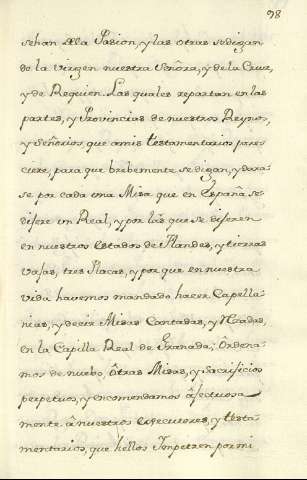 98
sehan de la Pasion, y las otras se digan
de la virgen nuestra Señora, y de la Cruz,
y de Requien. Las quales repartan en las
partes, y Provincias de nuestros Reynos,
y Señorios que amis testamentarios pares
ciere, para que brebemente se digan, y dara=
se por cada una Misa que en España se
dijere un Real, y por las que se dijeren
en nuestros estados de Flandes, y tierras
vajas, tres Placas, y por que en nuestra
vida havemos mandado hacer Capella=
nias, y decir Misas Cantadas, y Rezadas,
en la Capilla Real de Granada; Ordena=
mos de nuebo ôtras Misas, y sacrificios
perpetuos, y encomendamos âfectuosa
mente â nuestros executores, y testa=
mentarios, que hellos Impetren por mi